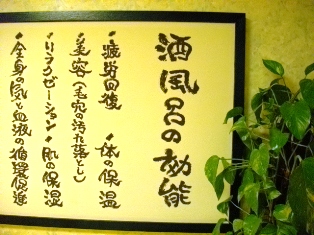 酒風呂の効能
〃疲労回復 〃体の保温
〃美容(毛穴の汚れ落とし)
〃リラクゼーション 〃肌の保湿
〃全身の気と血液の循環促進